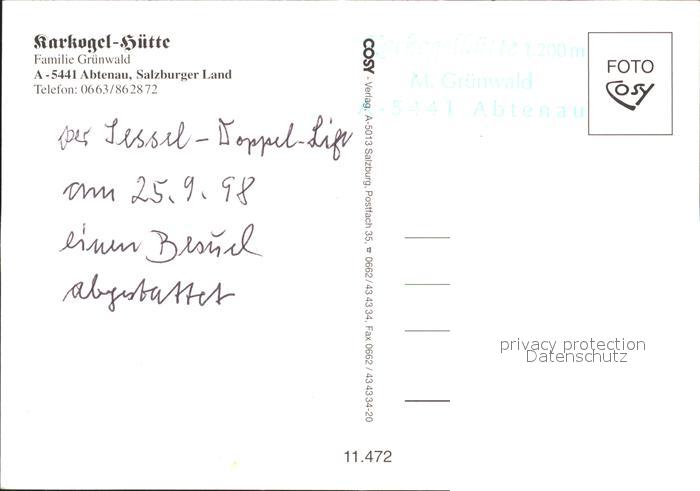 Karkogel-Hütte
Familie Grünwald
A-5441 Abtenau, Salzburger Land
Telefon: 0663/862872
per Sessel-Doppel-Lift
am 25.9.98
einen Besuch
abgestattet
COSY - Verlag, A-5013 Salzburg, Postfach 35, ☎ 0662/434334, Fax 0662/434334-20
Karkogel-Hütte 1.200m
M. Grünwald
A-5441 Abtenau
FOTO
Cosy
privacy protection
Datenschutz
11.472